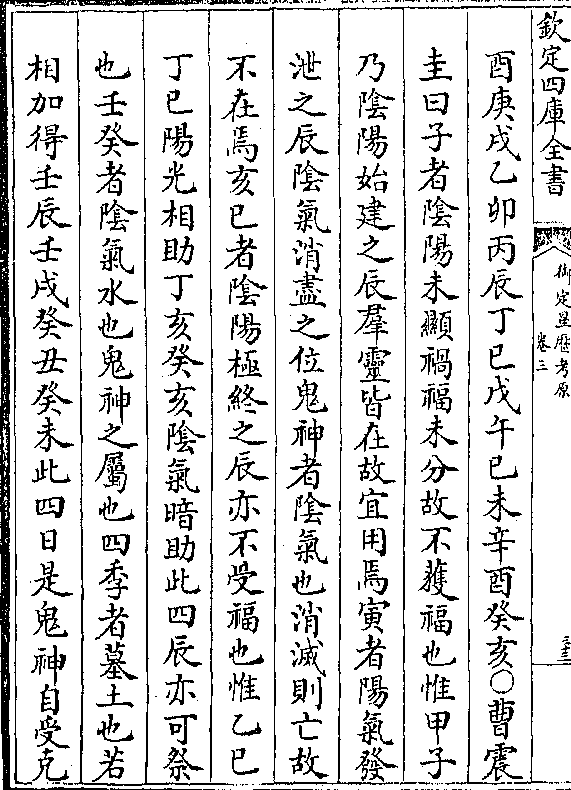 欽定四庫全書
御定星歷考原
卷三
三十三
酉庚戌乙卯丙辰丁巳戊午巳未辛酉癸亥○曹震
圭曰子者陰陽未顯禍福未分故不獲福也惟甲子
乃陰陽始建之辰羣靈皆在故宜用焉寅者陽氣發
泄之辰陰氣消盡之位鬼神者陰氣也消滅則亡故
不在焉亥巳者陰陽極終之辰亦不受福也惟乙巳
丁巳陽光相助丁亥癸亥陰氣暗助此四辰亦可祭
也壬癸者陰氣水也鬼神之屬也四季者墓土也若
相加得壬辰壬戌癸丑癸未此四日是鬼神自受克